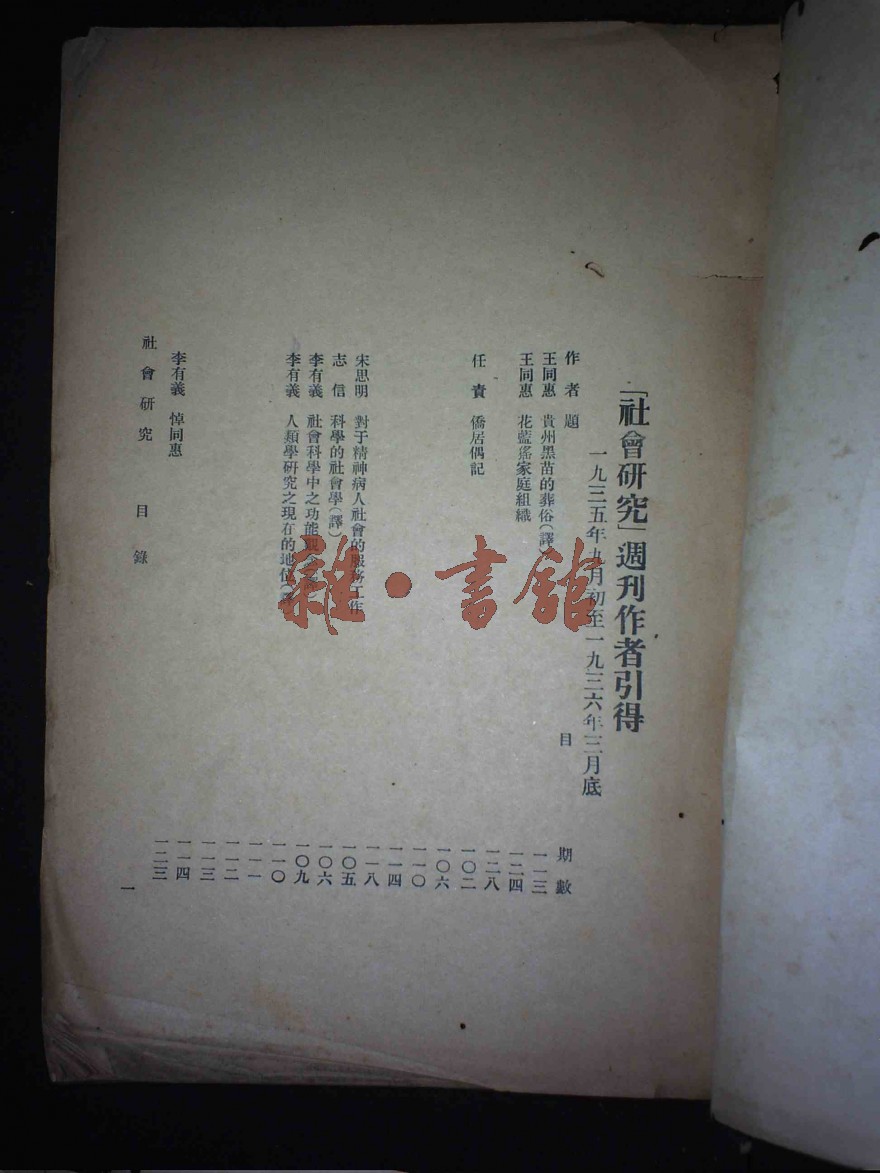 「社會研究」週刊作者引得
一九三五年九月初至一九三六年三月底
作者 題 目 期數
王同惠 貴州黑苗的葬俗(譯) 一一三
王同惠 花藍瑤家庭組織 一二四
一二八
任責 僑居偶記 一〇二
一〇六
一一〇
一一四
一一八
宋思明 對于精神病人社會的服務工作 一〇五
志信 科學的社會學(譯) 一〇六
李有義 社會科學中之功能 一〇九
李有義 人類學研究之現在的地位 一一〇
一一一
一一二
一一三
一一四
李有義 悼同惠 一二三
社會研究 目錄
一
雜·書館